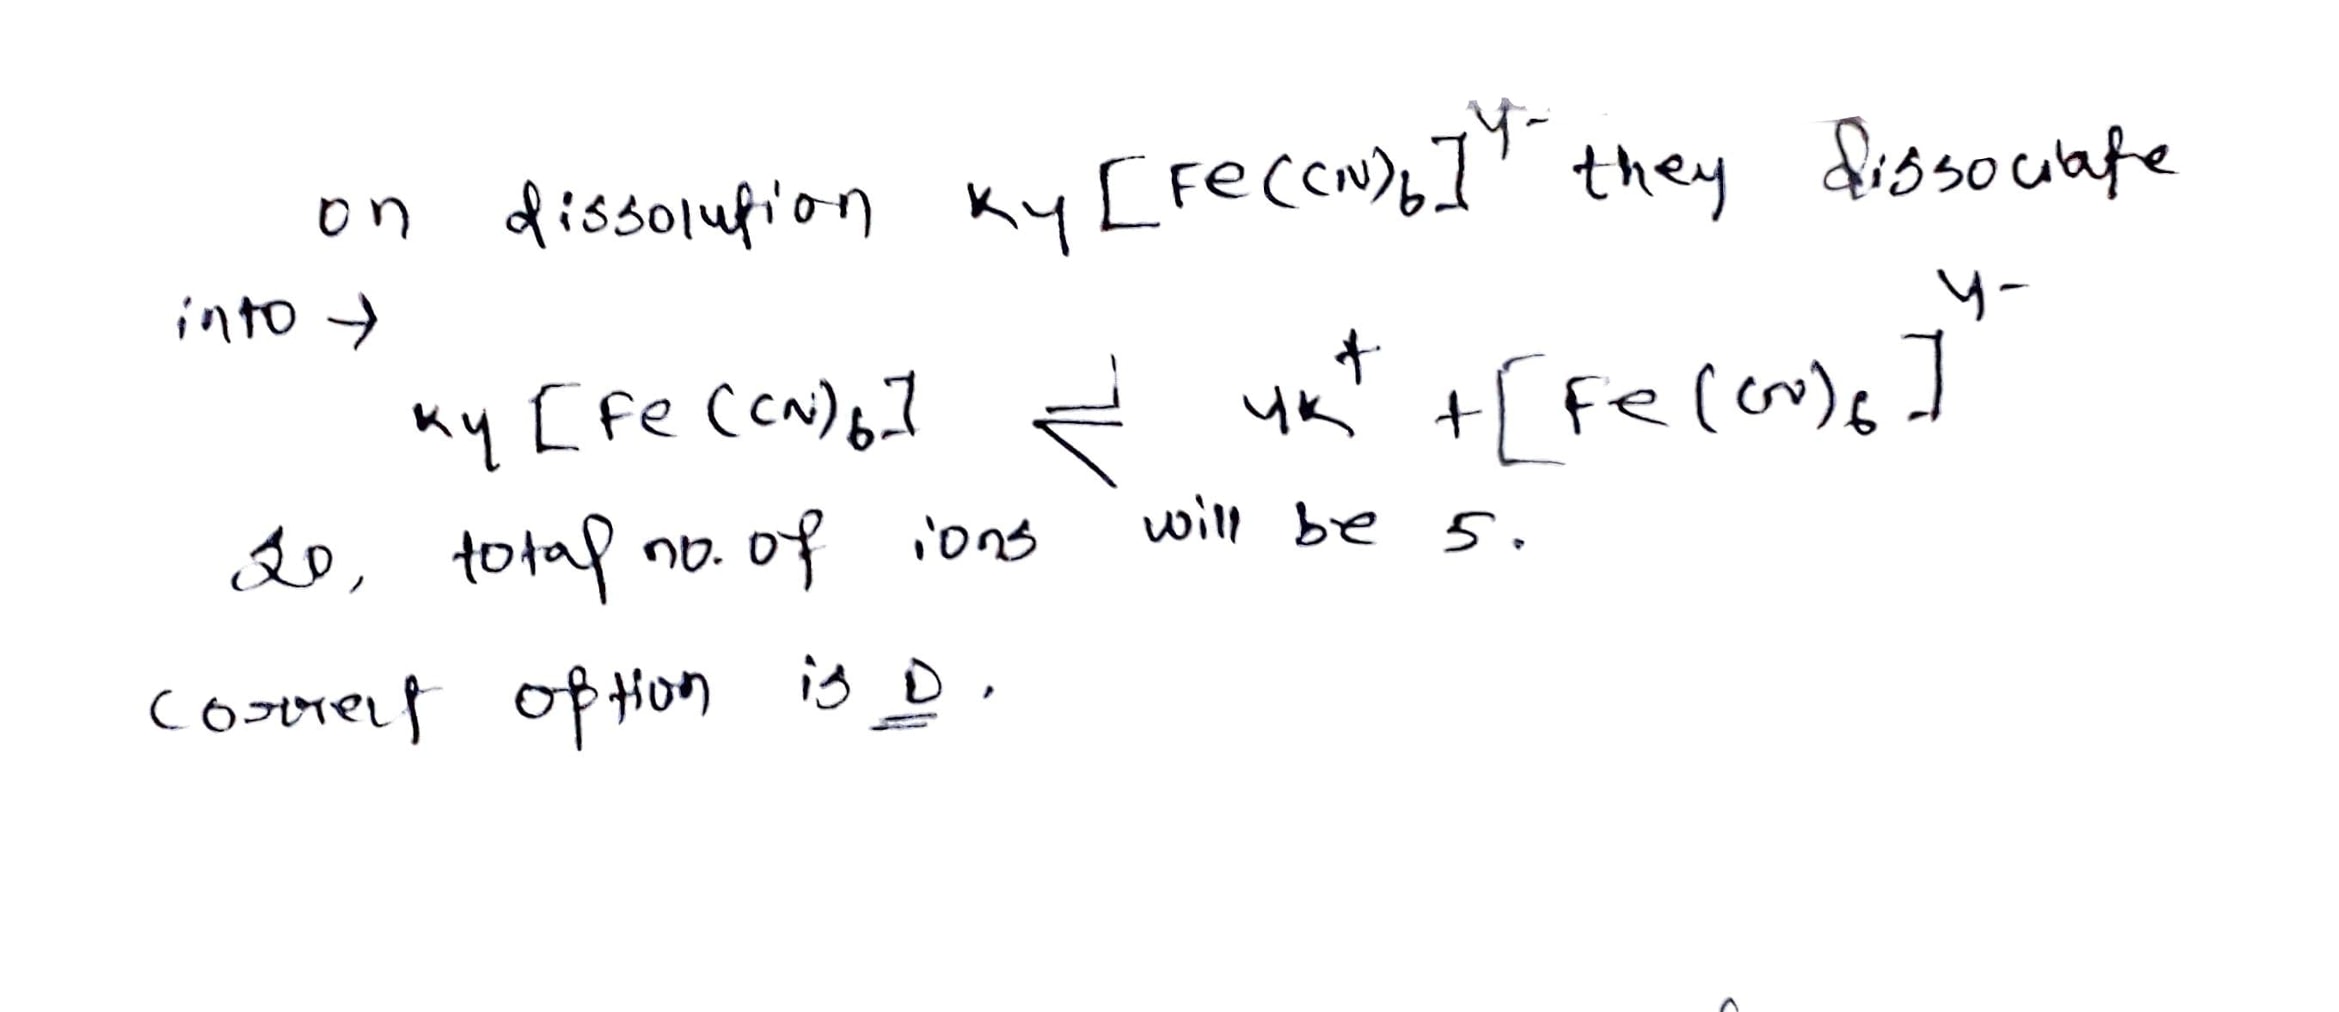 on dissolution K₄[Fe(CN)₆]⁴⁻ they dissociate
into →
K₄[Fe(CN)₆] ⇌ 4K⁺ + [Fe(CN)₆]⁴⁻
so, total no. of ions will be 5.
correct option is D.